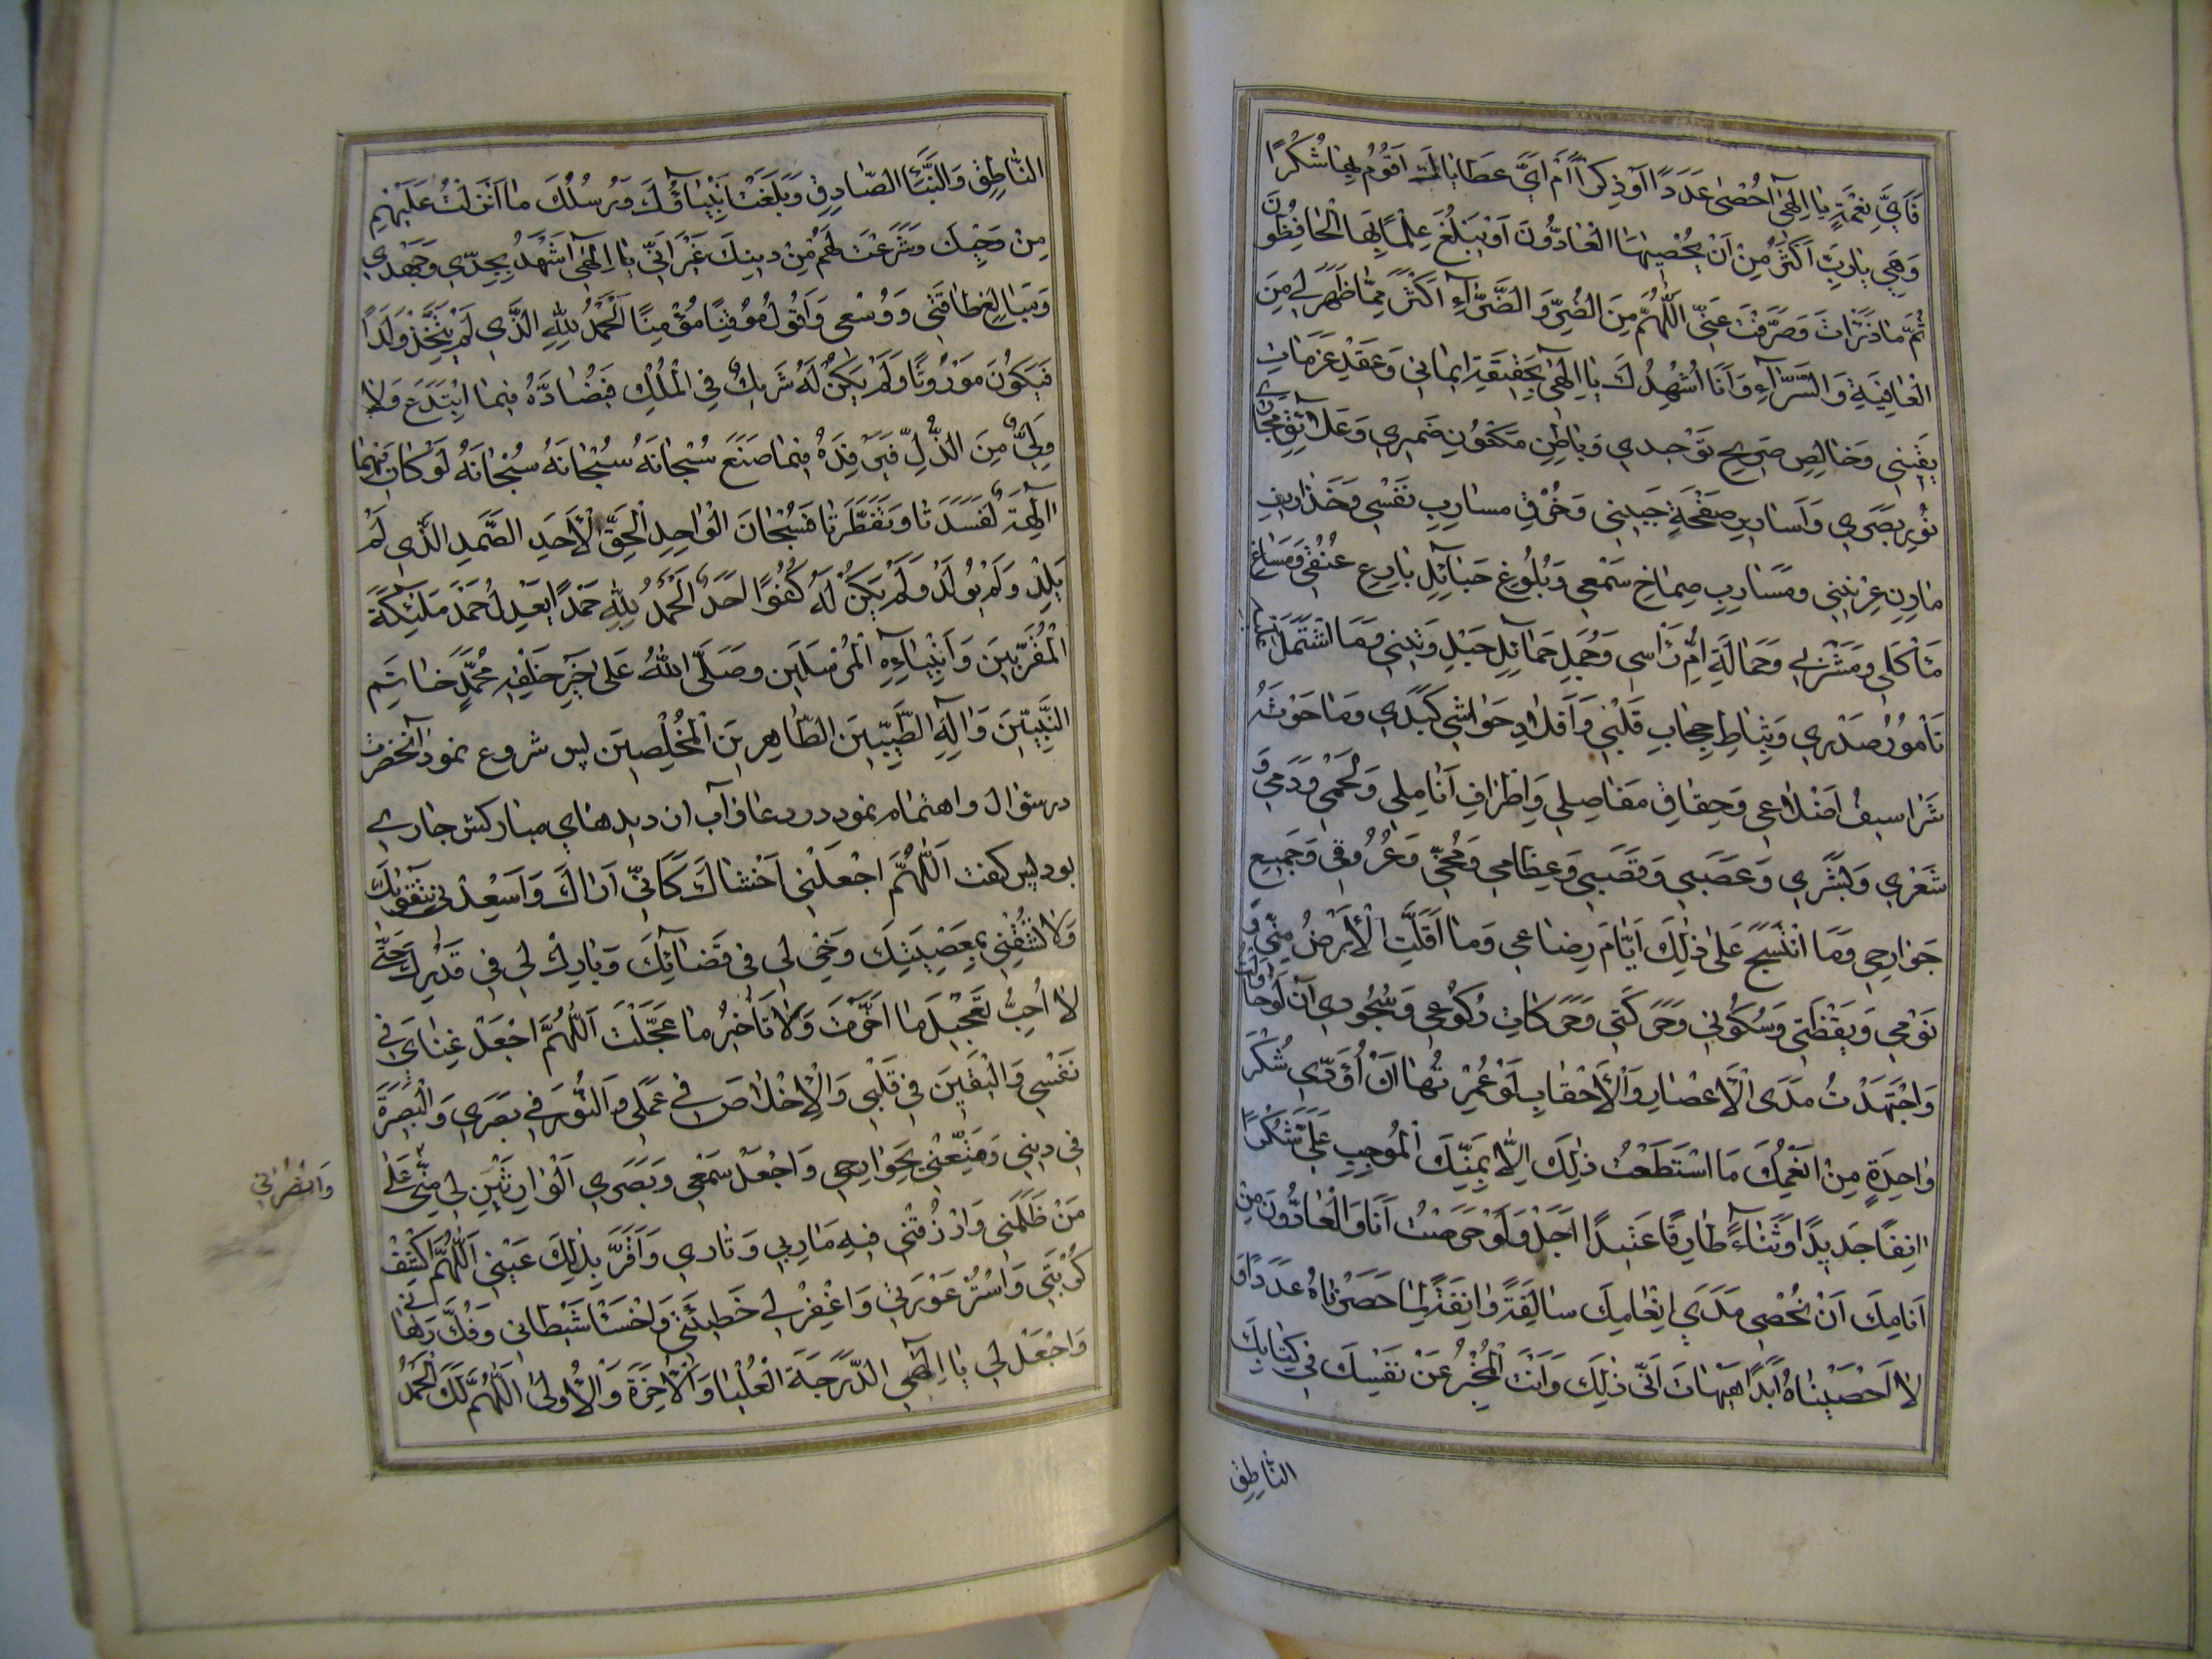 فَاَيَّ نِعْمَةٍ يٰا اِلٰهىٓ اُحْصٰى عَدَدًا اَوْ ذِكْرًا اَمْ اَيَّ عَطٰايٰاكَ اَقُومُ بِهٰا شُكْرًا
وَهِيَ يٰارَبِّ اَكْثَرُ مِنْ اَنْ يُحْصِيَهَا الْعٰادُّونَ اَوْ يَبْلُغَ عِلْمًا بِهَا الْحٰافِظُونَ
ثُمَّ مٰا ذَرَاْتَ وَصَرَفْتَ عَنّىِ اَللّٰهُمَّ مِنَ الضُرِّ وَالضَّرّٰآءِ اَكْثَرُ مِمّٰا ظَهَرَ لِي مِنَ
الْعٰافِيَةِ وَالسَّرّٰآءِ وَاَنَا اُشْهِدُكَ يٰا اِلٰهىٓ بِحَقِيقَةِ ايمٰانى وَعَقْدِ عَزَمٰاتِ
يَقٖينى وَخٰالِصِ صَرٖيحِ تَوْحٖيدي وَبٰاطِنِ مَكْنُونِ ضَمٖيري وَعَلٰآئِقِ مَجٰارِي
نُورِ بَصَري وَاَسٰارٖيرِ صَفْحَةِ جَبٖينى وَخُرْقِ مَسٰارِبِ نَفْسٖي وَخَذٰارٖيفِ
مٰارِنِ عِرْنٖينى وَمَسٰارِبِ صِمٰاخِ سَمْعي وَبُلُوغِ حَبٰآئِلِ بٰارِعِ عُنُقٖي وَمَسٰاغِ
مَاْكَلي وَمَشْرَبي وَحَمٰالَةِ اُمِّ رَاْسٖي وَجُمَلِ حَمٰآئِلِ حَبْلِ وَتٖينٖي وَمَا اشْتَمَلَ عَلَيْهِ
تٰامُورُ صَدْري وَنِيٰاطِ حِجٰابِ قَلْبٖي وَاَفْلٰاذِ حَوٰاشٖي كَبِدٖي وَمٰا حَوَتْهُ
شَرٰاسٖيفُ اَضْلٰاعي وَحِقٰاقِ مَفٰاصِلي وَاَطْرٰافِ اَنٰامِلي وَلَحْمٖي وَدَمٖي وَ
شَعْري وَبَشَري وَعَصَبي وَقَصَبي وَعِظٰامي وَمُخّٖي وَعُرُوقٖي وَجَمٖيعِ
جَوٰارِحي وَمَا انْتَسَجَ عَلٰى ذٰلِكَ اَيّٰامَ رِضٰاعي وَمٰا اَقَلَّتِ الْاَرْضُ مِنّٖي وَ
نَوْمي وَيَقْظَتٖي وَسُكُونٖي وَحَرَكَتٖي وَحَرَكٰاتِ رُكُوعي وَسُجُودي اَنْ لَوْ حٰاوَلْتُ
وَاجْتَهَدْتُ مَدَى الْاَعْصٰارِ وَالْاَحْقٰابِ لَوْ عُمِّرْتُهٰا اَنْ اُؤَدِّيَ شُكْرَ
وٰاحِدَةٍ مِنْ اَنْعُمِكَ مَا اسْتَطَعْتُ ذٰلِكَ اِلّٰا بِمَنِّكَ الْمُوجِبِ عَلَيَّ شُكْرًا
اٰنِفًا جَدٖيدًا وَثَنٰآءً طٰارِقًا عَتٖيدًا اَجَلْ وَلَوْ حَرَصْتُ اَنَا وَالْعٰادُّونَ مِنْ
اَنٰامِكَ اَنْ نُحْصِىَ مَدٰي اِنْعٰامِكَ سٰالِفَةً وَاٰنِفَةً لَمٰا حَصَرْنٰاهُ عَدَدًا وَ
لٰا اَحْصَيْنٰاهُ اَبَدًا هَيْهٰاتَ اَنّٰى ذٰلِكَ وَاَنْتَ الْمُخْبِرُ عَنْ نَفْسِكَ فٖي كِتٰابِكَ
النّٰاطِقِ
النّٰاطِقِ وَالنَّبَأِ الصّٰادِقِ وَبَلَّغَتْ اَنْبِيٰآؤُكَ وَرُسُلُكَ مٰا اَنْزَلْتَ عَلَيْهِمْ
مِنْ وَحْيِكَ وَشَرَعْتَ لَهُمْ مِنْ دٖينِكَ غَيْرَ اَنّٖي يٰا اِلٰهىٓ اَشْهَدُ بِجِدّٖي وَجَهْدي
وَمَبٰالِغِ طٰاقَتٖي وَوُسْعٖي وَاَقُولُ مُوقِنًا مُؤْمِنًا اَلْحَمْدُ لِلّٰهِ الَّذٖي لَمْ يَتَّخِذْ وَلَدًا
فَيَكُونَ مَوْرُوثًا وَلَمْ يَكُنْ لَهُ شَرٖيكٌ فِي الْمُلْكِ فَيُضٰادَّهُ فٖيمَا ابْتَدَعَ وَلٰا
وَلِيٌّ مِنَ الذُّلِّ فَيَرْفِدَهُ فٖيمٰا صَنَعَ سُبْحٰانَهُ سُبْحٰانَهُ سُبْحٰانَهُ لَوْ كٰانَ فٖيهِمٰا
اٰلِهَةٌ لَفَسَدَتٰا وَتَفَطَّرَتٰا فَسُبْحٰانَ الْوٰاحِدِ الْحَقِّ الْاَحَدِ الصَّمَدِ الَّذٖي لَمْ
يَلِدْ وَلَمْ يُولَدْ وَلَمْ يَكُنْ لَهُ كُفُوًا اَحَدٌ اَلْحَمْدُ لِلّٰهِ حَمْدًا يَعْدِلُ حَمْدَ مَلٰئِكَتِهِ
الْمُقَرَّبٖينَ وَاَنْبِيٰاءِهِ الْمُرْسَلٖينَ وَصَلَّى اللّٰهُ عَلٰى خَيْرِ خَلْقِهِ مُحَمَّدٍ خٰاتَمِ
النَّبِيّٖينَ وَاٰلِهِ الطَّيِّبٖينَ الطّٰاهِرٖينَ الْمُخْلِصٖينَ پس شروع نمود آنحضرت
در سؤال و اهتمام نمود در دعا و آب از ديدهٰاي مباركش جاري
بود پس كفت اَللّٰهُمَّ اجْعَلْنٖي اَخْشٰاكَ كَاَنّٖي اَرٰاكَ وَاَسْعِدْنٖي بِتَقْوٰيكَ
وَلٰا تُشْقِنٖي بِمَعْصِيَتِكَ وَخِرْ لٖي فٖي قَضٰآئِكَ وَبٰارِكْ لٖي فٖي قَدَرِكَ حَتّٰى
لٰا اُحِبُّ تَعْجٖيلَ مٰا اَخَّرْتَ وَلٰا تَاْخٖيرَ مٰا عَجَّلْتَ اَللّٰهُمَّ اجْعَلْ غِنٰايَ فٖي
نَفْسٖي وَالْيَقٖينَ فٖي قَلْبٖي وَالْاِخْلٰاصَ فٖي عَمَلٖي وَالنُّورَ فٖي بَصَري وَالْبَصٖيرَةَ
فٖي دٖينٖي وَمَتِّعْنٖي بِجَوٰارِحٖي وَاجْعَلْ سَمْعٖي وَبَصَرٖي الْوٰارِثَيْنِ لٖي مِنّٖي عَلٰى
وَانْصُرْنٖي
مَنْ ظَلَمَنٖي وَارْزُقْنٖي فٖيهِ مَاٰرِبٖي وَثٰارٖي وَاَقِرَّ بِذٰلِكَ عَيْنٖي اَللّٰهُمَّ اكْشِفْ
كُرْبَتٖي وَاسْتُرْ عَوْرَتٖي وَاغْفِرْ لٖي خَطٖيئَتٖي وَاخْسَأْ شَيْطٰانٖي وَفُكَّ رِهٰانٖي
وَاجْعَلْ لٖي يٰا اِلٰهىٖ الدَّرَجَةَ الْعُلْيٰا وَالْاٰخِرَةَ وَالْاُولٰى اَللّٰهُمَّ لَكَ الْحَمْدُ